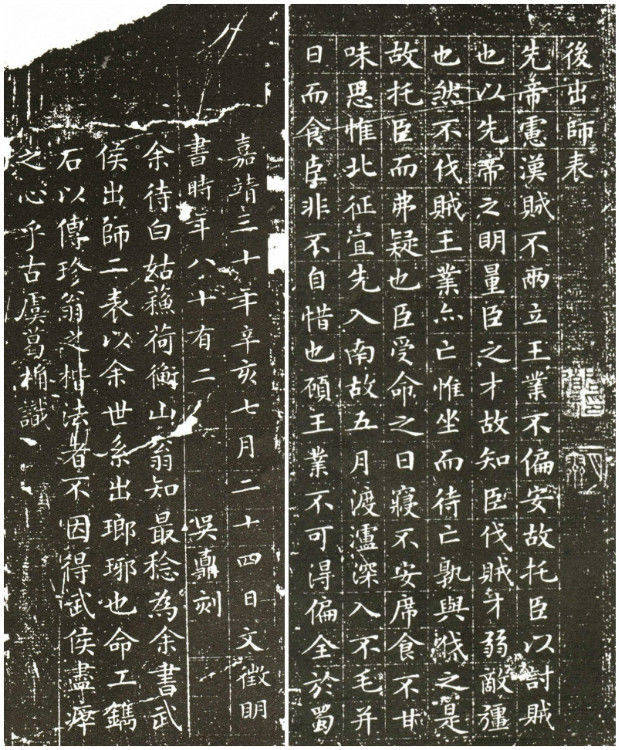 後出師表
先帝慮漢賊不兩立王業不偏安故托臣以討賊
也以先帝之明量臣之才故知臣伐賊才弱敵彊
也然不伐賊王業亦亡惟坐而待亡孰與伐之是
故托臣而弗疑也臣受命之日寢不安席食不甘
味思惟北征宜先入南故五月渡瀘深入不毛并
日而食臣非不自惜也顧王業不可得偏全於蜀
嘉靖三十年辛亥七月二十四日文徵明
書時年八十有二 吳鼒刻
余待白姑蘇荷衡山翁知最稔為余書武
侯出師二表以余世系出瑯琊也命工鐫
石以傳珍翁之楷法者不因得武侯盡瘁
之心乎古虞葛桷識